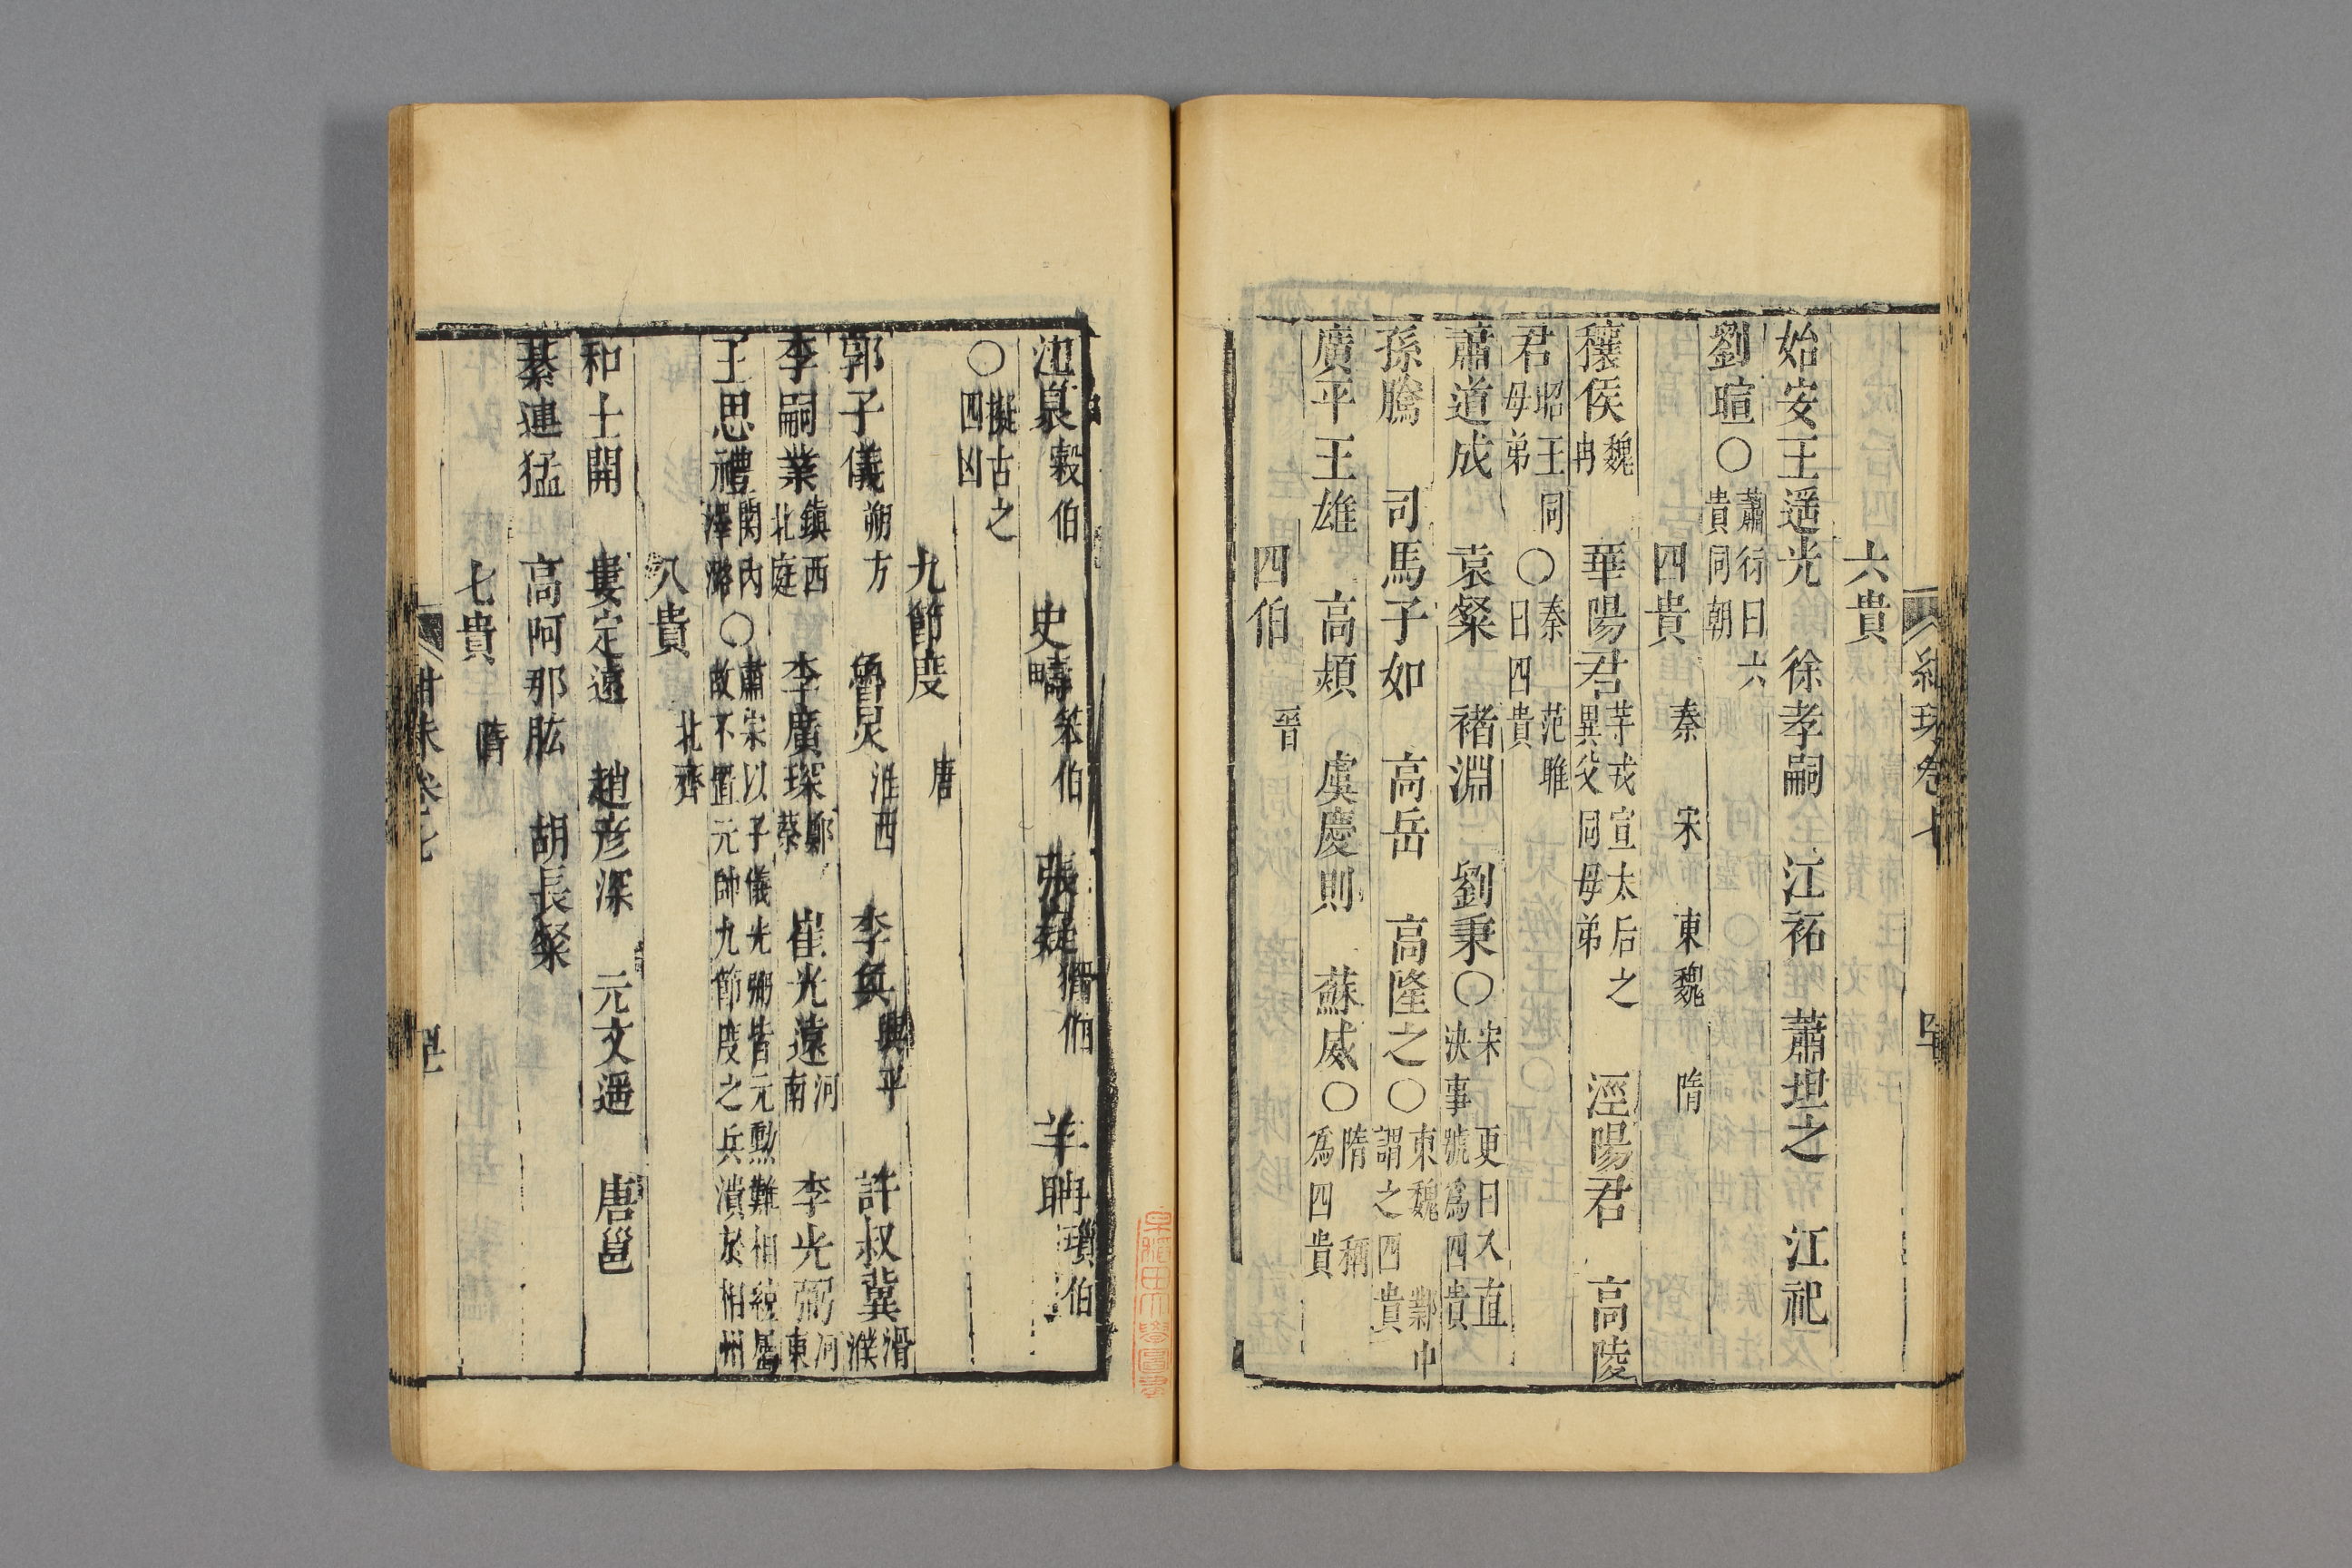 六貴
始安王遥光　徐孝嗣　江祏　蕭坦之　江祀
劉暄〇蕭衍曰六貴同朝
四貴　秦　宋　東魏　隋
穰侯魏冉　華陽君芋戎宣太后之異父同母弟　涇陽君　高陵
君昭王同母弟〇秦范雎曰四貴
蕭道成　袁粲　褚淵　劉秉〇宋更日入直決事號爲四貴
孫騰　司馬子如　高岳　高隆之〇東魏鄴中謂之四貴
廣平王雄　高熲　虞慶則　蘇威〇隋稱爲四貴
四伯　晉
江泉穀伯　史疇笨伯　張嶷猾伯　羊聃瑣伯
〇擬古之四凶
九節度　唐
郭子儀朔方　魯炅淮西　李奐興平　許叔冀滑濮
李嗣業鎮西北庭　李廣琛鄭蔡　崔光遠河南　李光弼河東
王思禮関内澤潞〇蕭宗以子儀光弼皆元勲難相統屬故不置元帥九節度之兵潰於相州
八貴　北齊
和士開　婁定遠　趙彦深　元文遥　唐邕
綦連猛　高阿那肱　胡長粲
七貴　隋